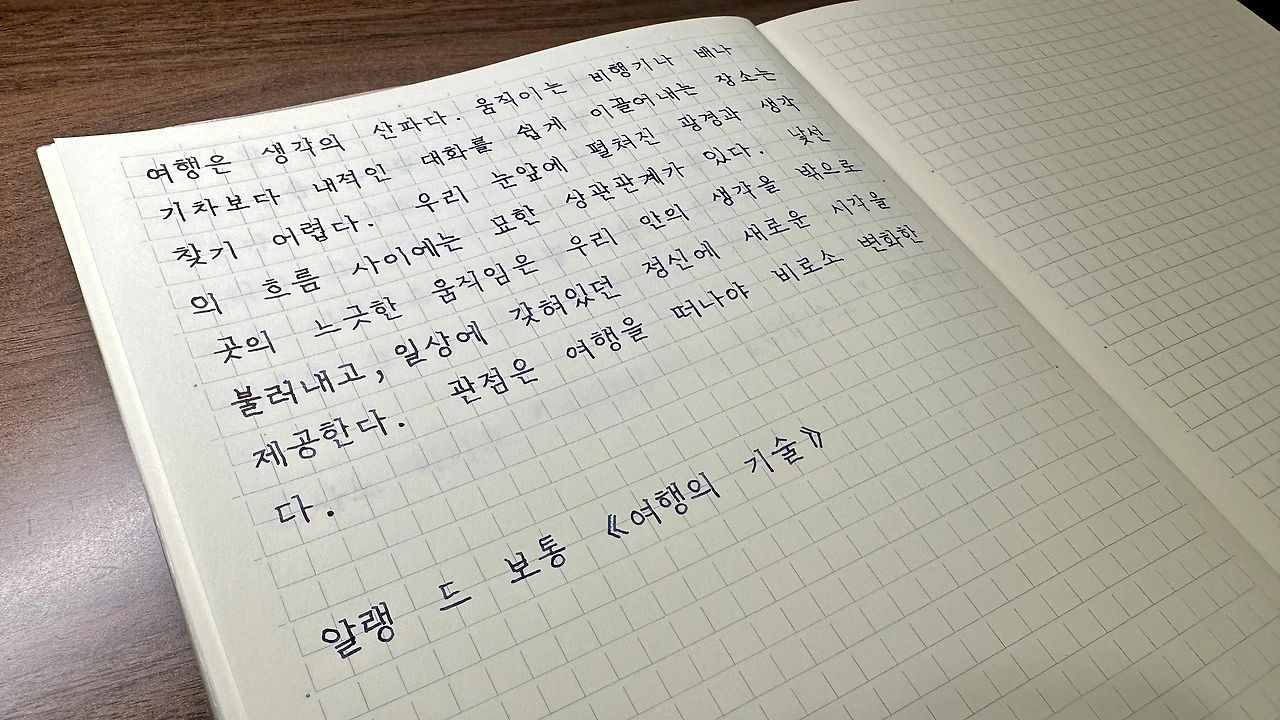 여행은 생각의 산파다. 움직이는 비행기나 배나
기차보다 내적인 대화를 쉽게 이끌어내는 장소는
찾기 어렵다. 우리 눈앞에 펼쳐진 광경과 생각
의 흐름 사이에는 묘한 상관관계가 있다. 낯선
곳의 느긋한 움직임은 우리 안의 생각을 밖으로
불러내고, 일상에 갖혀있던 정신에 새로운 시각을
제공한다. 관점은 여행을 떠나야 비로소 변화한
다.
알랭 드 보통 《여행의 기술》